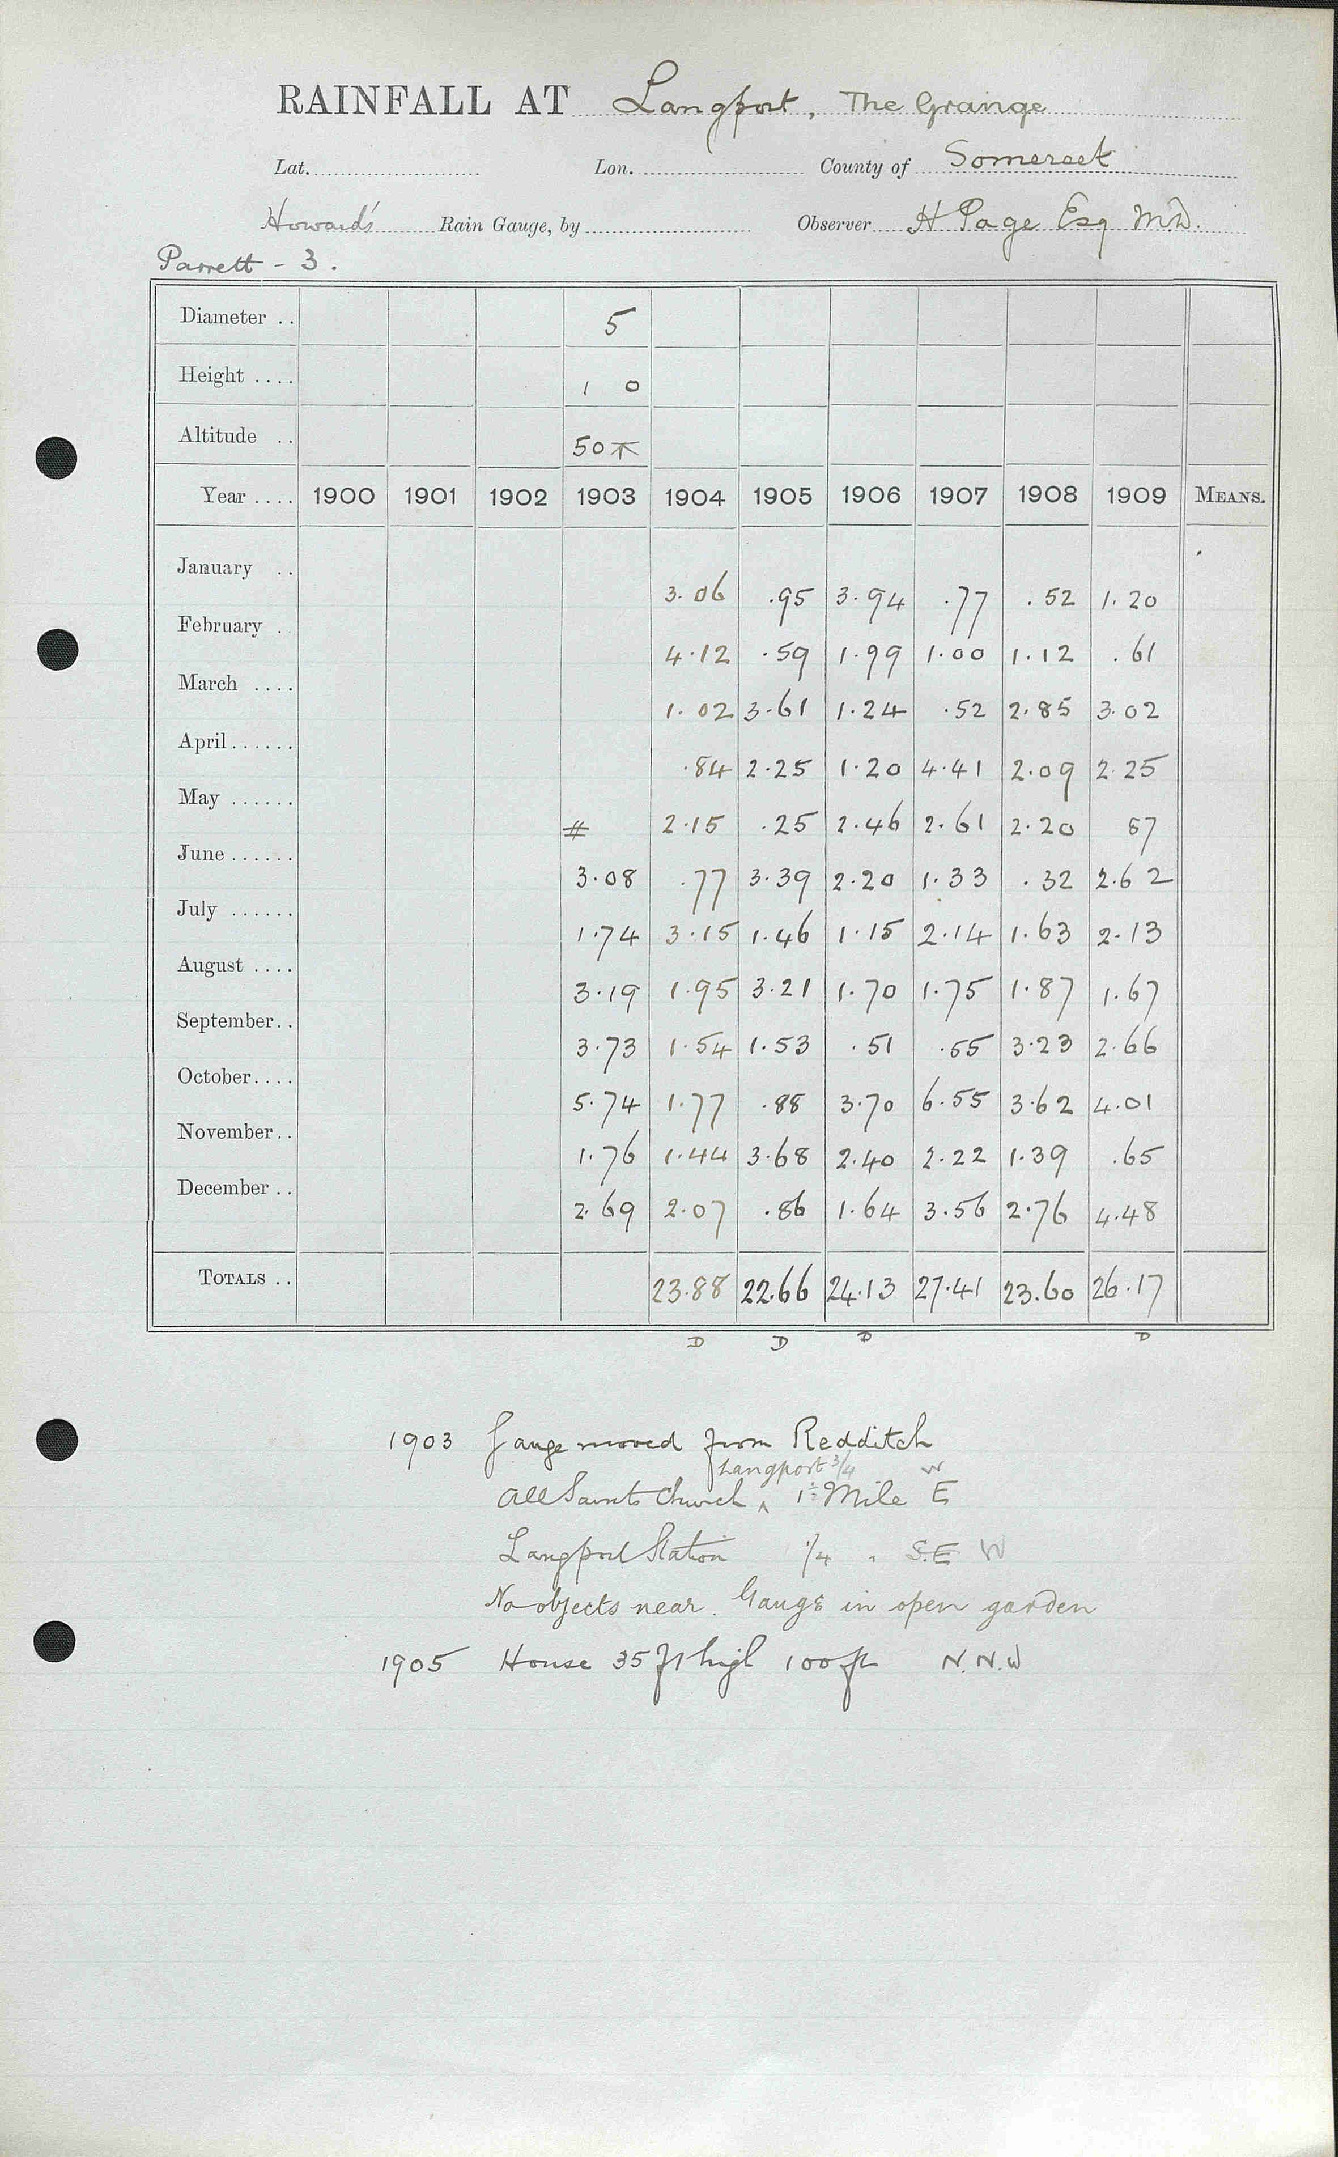 RAINFALL AT Langport, The Grange
Lat. Lon. County of Somerset
Howard's Rain Gauge, by Observer H Page Esq M.D.
Parrett - 3.
Diameter .. 5
Height .... 1 0
Altitude .. 50
Year .... 1900 1901 1902 1903 1904 1905 1906 1907 1908 1909 MEANS.
January .. 3.06 .95 3.94 .77 .52 1.20
February . 4.12 .59 1.99 1.00 1.12 .61
March .... 1.02 3.61 1.24 .52 2.85 3.02
April...... .84 2.25 1.20 4.41 2.09 2.25
May ...... # 2.15 .25 2.46 2.61 2.20 87
June...... 3.08 .77 3.39 2.20 1.33 .32 2.62
July ...... 1.74 3.15 1.46 1.15 2.14 1.63 2.13
August .... 3.19 1.95 3.21 1.70 1.75 1.87 1.67
September.. 3.73 1.54 1.53 .51 .55 3.23 2.66
October.... 5.74 1.77 .88 3.70 6.55 3.62 4.01
November.. 1.76 1.44 3.68 2.40 2.22 1.39 .65
December .. 2.69 2.07 .86 1.64 3.56 2.76 4.48
TOTALS .. 23.88 22.66 24.13 27.41 23.60 26.17
D D D D
1903 Gauge moved from Redditch
Langport 3/4 W
All Saints Church ^ Mile E
Langport Station 1/4 " S.E W
No objects near. Gauge in open garden
1905 House 35 ft high 100 ft N.N.W